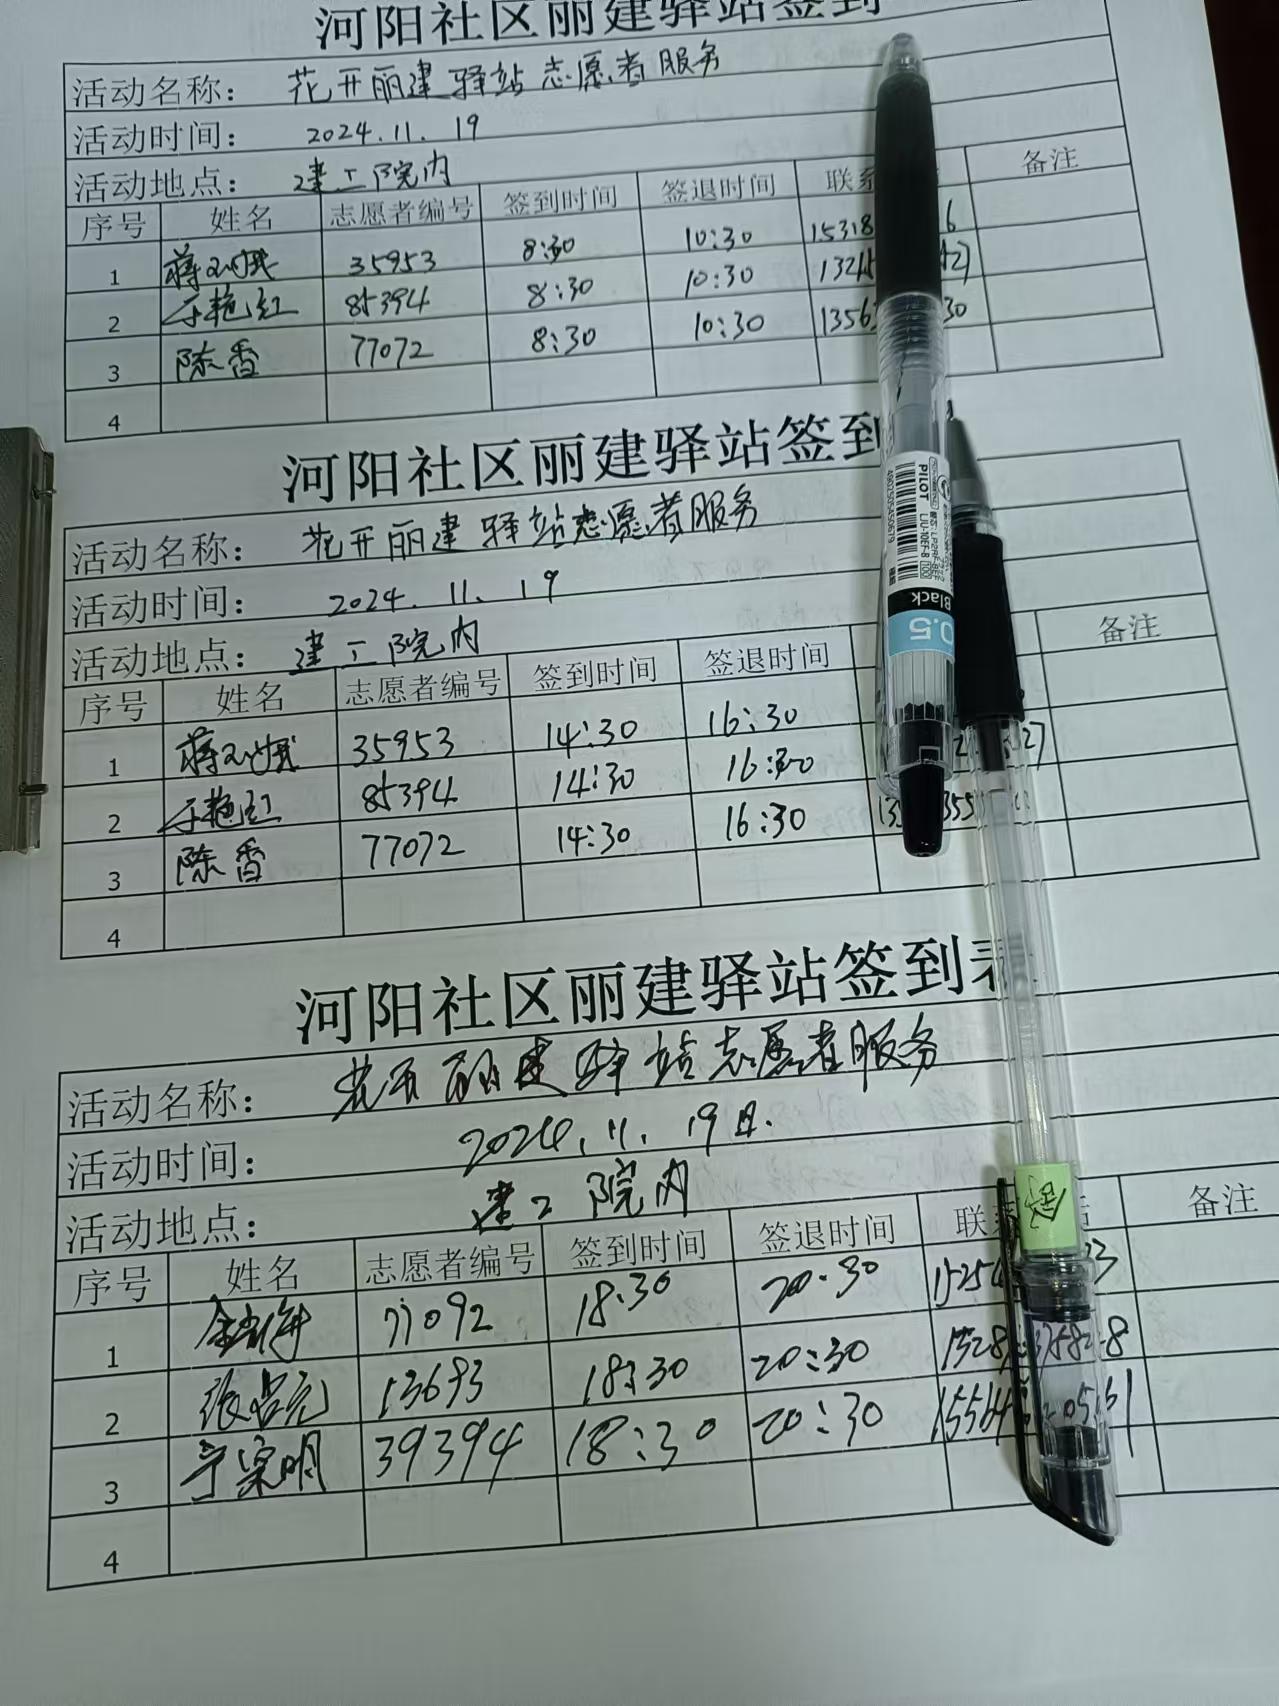 河阳社区丽建驿站签到
活动名称： 花开丽建驿站志愿者服务
活动时间： 2024.11.19
活动地点： 建工院内
序号 姓名 志愿者编号 签到时间 签退时间 联系 备注
1 35953 8:30 10:30 15318 6
2 于艳红 85394 8:30 10:30
3 陈香 77072 8:30 10:30 1356 30
4
河阳社区丽建驿站签到
活动名称： 花开丽建驿站志愿者服务
活动时间： 2024.11.19
活动地点： 建工院内
序号 姓名 志愿者编号 签到时间 签退时间 备注
1 35953 14:30 16:30
2 于艳红 85394 14:30 16:30
3 陈香 77072 14:30 16:30
4
河阳社区丽建驿站签到表
活动名称： 花开丽建驿站志愿者服务
活动时间： 2024.11.19日.
活动地点： 建工院内
序号 姓名 志愿者编号 签到时间 签退时间 联系 话 备注
1 77092 18:30 20:30
2 13693 18:30 20:30
3 于宗明 39394 18:30 20:30
4
PILOT
LJU-10EF-B
Black
0.5